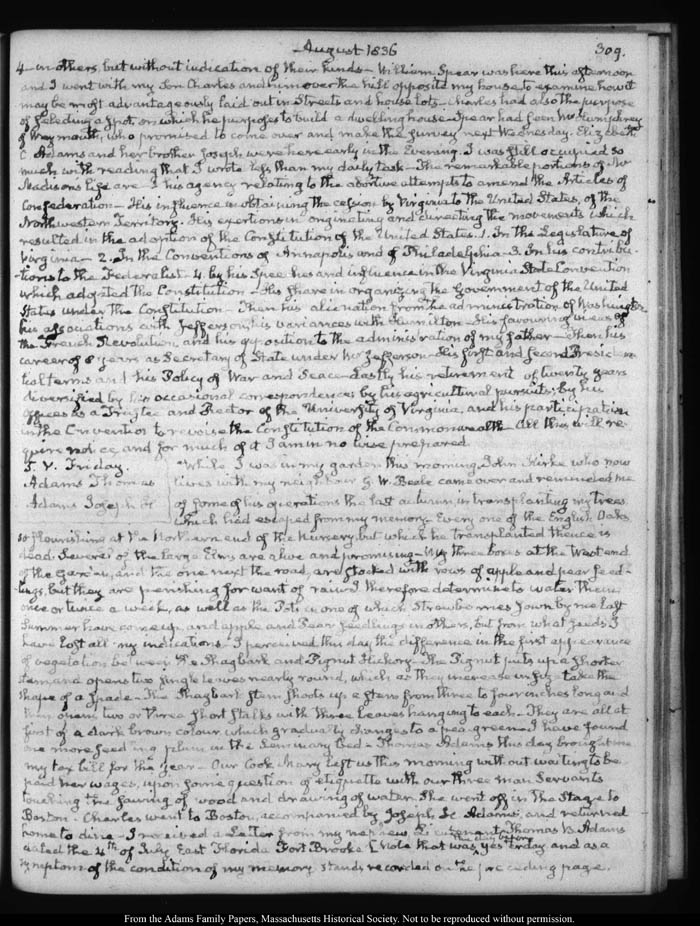 August 1836
309.
4 in others, but without indication of their kinds — William Spear was here this afternoon
and I went with my Son Charles and him over the hill opposite my house to examine how it
may be most advantageously laid out in Streets and house lots — Charles had also the purpose
of selecting a spot, on which he purposes to build a dwelling house — Spear had seen Mr Humphrey
of Weymouth, who promised to come over and make the survey next Wednesday. Elizabeth
C. Adams and her brother Joseph, were here early in the Evening. I was still occupied so
much with reading that I wrote less than my daily task — The remarkable portions of Mr
Madison's life are — 1 his agency relating to the abortive attempts to amend the Articles of
Confederation — His influence in obtaining the cession by Virginia to the United States, of the
Northwestern Territory. His exertions in originating and directing the movements which
resulted in the adoption of the Constitution of the United States. 1. In the Legislature of
Virginia — 2. In the Conventions of Annapolis and of Philadelphia — 3. In his contribu-
tions to the Federalist — 4. by his Speeches and influence in the Virginia State Convention
which adopted the Constitution — His share in organizing the Government of the United
States under the Constitution — Then his alienation from the administration of Washington
his associations with Jefferson, his variances with Hamilton — His favouring views of
the French Revolution, and his opposition to the administration of my father — Then his
career of 8 years as Secretary of State under Mr Jefferson — His first and second Presiden-
tial terms and his Policy of War and Peace — Lastly his retirement of twenty years
diversified by his occasional correspondence, by his agricultural pursuits, by his
offices as a Trustee and Rector of the University of Virginia, and his participation
in the Convention to revise the Constitution of the Commonwealth — All this will re-
quire notice, and for much of it I am in no wise prepared.
5. V. Friday.
Adams Thomas
Adams Joseph H
While I was in my garden this morning, John Kirke who now
lives with my neighbour G. W. Beale came over and reminded me
of some of his operations the last autumn in transplanting my trees
which had escaped from my memory. Every one of the English Oaks
so flourishing at the Northern end of the Nursery, but which he transplanted thence is
dead. Several of the large Elms are alive and promising — My three boxes at the West end
of the Garden, and the one next the road, are stocked with rows of apple and pear seed-
lings, but they are perishing for want of rain. I therefore determine to water them
once or twice a week, as well as the Pots in one of which Strawberries sown by me last
Summer have come up, and apple and Pear seedlings in others, but from what seeds I
have lost all my indications. I perceived this day the difference in the first appearance
of vegetation between the Shagbark and Pignut Hickory — The Pignut puts up a shorter
stem, and opens two single leaves nearly round, which as they increase in size take the
shape of a spade — The Shagbark stem shoots up a stem from three to four inches long and
then opens two or three short stalks with three leaves hanging to each — They are all at
first of a dark brown colour which gradually changes to a pea green — I have found
one more seedling plum in the Seminary bed — Thomas Adams this day brought me
my tax bill for the year — Our Cook Mary left us this morning without waiting to be
paid her wages, upon some question of etiquette with our three man Servants
touching the sawing of wood and drawing of water. She went off in the Stage to
Boston. Charles went to Boston, accompanied by Joseph H. Adams, and returned
home to dine — I received a Letter from my nephew Lieutenant Thomas B. Adams
dated the 4th of July East Florida Fort Brooke [Note that was the day before yesterday and as a
symptom of the condition of my memory stands recorded on the preceding page.
From the Adams Family Papers, Massachusetts Historical Society. Not to be reproduced without permission.